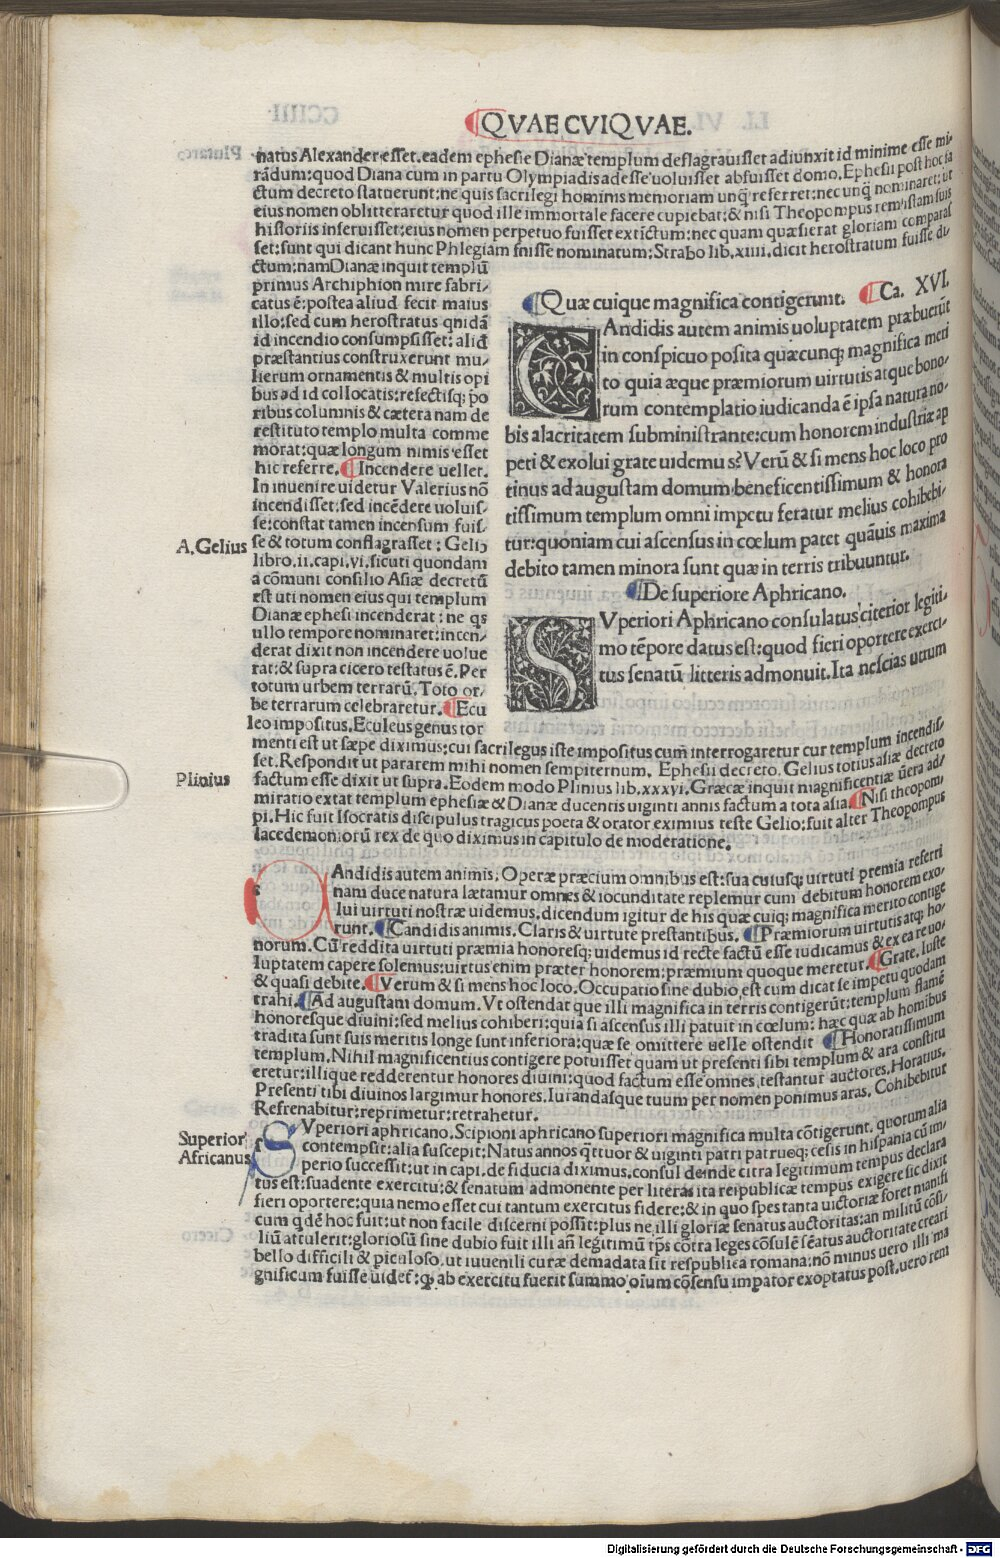 QVAE CVIQVAE.
natus Alexander esset. eadem ephesie Dianæ templum deflagrauisset adiunxit id minime esse mi-
rādum: quod Diana cum in partu Olympiadis adesse uoluisset abfuisset domo. Ephesii post hoc fa
ctum decreto statuerunt: ne quis sacrilegi hominis memoriam unq̄ referret: nec unq̄ nominaret: ut
eius nomen oblitteraretur quod ille immortale facere cupiebat: & nisi Theopompus rem istam suis
historiis inseruisset: eius nomen perpetuo fuisset extictum: nec quam quæsierat gloriam comparas
set: sunt qui dicant hunc Phlegiam fnisse nominatum: Strabo lib. xiiii. dicit herostratum fuisse di-
ctum: nam Dianæ inquit templū
primus Archiphion mire fabri-
catus ē: postea aliud fecit maius
illo: sed cum herostratus qnidā
id incendio consumpsisset: aliđ
præstantius construxerunt mu-
lierum ornamentis & multis opi
bus ad id collocatis: refectisq; po
ribus columnis & cætera nam de
restituto templo multa comme
morat: quæ longum nimis esset
hic referre. Incendere uellet.
In inuenire uidetur Valerius nō
incendisset: sed incēdere uoluis-
se: constat tamen incensum fuis-
A. Gelius
se & totum conflagrasset: Gelio
libro. ii. capi. vi. sicuti quondam
a cōmuni consilio Asiæ decretū
est uti nomen eius qui templum
Dianæ ephesi incenderat: ne qs
ullo tempore nominaret: incen-
derat dixit non incendere uolue
rat: & supra cicero testatus ē. Per
totum urbem terrarū. Toto or-
be terrarum celebraretur. Ecu
leo impositus. Eculeus genus tor
Quæ cuique magnifica contigerunt. Ca. XVI.
CAndidis autem animis uoluptatem præbuerūt
in conspicuo posita quæcunq; magnifica meri
to quia æque præmiorum uirtutis atque bono-
rum contemplatio iudicanda ē ipsa natura no-
bis alacritatem subministrante: cum honorem industriæ ap
peti & exolui grate uidemus? Verū & si mens hoc loco pro
tinus ad augustam domum beneficentissimum & honora
tissimum templum omni impetu feratur melius cohibebi-
tur: quoniam cui ascensus in cœlum patet quāuis maxima
debito tamen minora sunt quæ in terris tribuuntur.
De superiore Aphricano.
SVperiori Aphricano consulatus citerior legiti-
mo tēpore datus est: quod fieri oportere exerci-
tus senatū litteris admonuit. Ita nescias utrum
menti est ut sæpe diximus: cui sacrilegus iste impositus cum interrogaretur cur templum incendis
set. Respondit ut pararem mihi nomen sempiternum. Ephesii decreto. Gelius totius asiæ decreto
Plinius
factum esse dixit ut supra. Eodem modo Plinius lib. xxxvi. Græcæ inquit magnificentiæ uera ad-
miratio extat templum ephesiæ & Dianæ ducentis uiginti annis factum a tota asia. Nisi theopom
pi. Hic fuit Isocratis discipulus tragicus poeta & orator eximius teste Gelio: fuit alter Theopompus
lacedemoniorū rex de quo diximus in capitulo de moderatione.
CAndidis autem animis. Operæ præcium omnibus est: sua cuiusq; uirtuti premia referri
nam duce natura lætamur omnes & iocunditate replemur cum debitum honorem exo-
lui uirtuti nostræ uidemus. dicendum igitur de his quæ cuiq; magnifica merito contige
runt. Candidis animis. Claris & uirtute prestantibus. Præmiorum uirtutis atq; ho-
norum. Cū reddita uirtuti præmia honoresq; uidemus id recte factū esse iudicamus & ex ea re uo-
luptatem capere solemus: uirtus enim præter honorem: præmium quoque meretur. Grate. Iuste
& quasi debite. Verum & si mens hoc loco. Occupatio sine dubio est cum dicat se impetu quodam
trahi. Ad augustam domum. Vt ostendat que illi magnifica in terris contigerūt: templum flamē
honoresque diuini: sed melius cohiberi: quia si ascensus illi patuit in cœlum: hæc quæ ab homibus
tradita sunt suis meritis longe sunt inferiora: quæ se omittere uelle ostendit Honoratissimum
templum. Nihil magnificentius contigere potuisset quam ut presenti sibi templum & ara constitu
eretur: illique redderentur honores diuini: quod factum esse omnes testantur auctores. Horatius.
Presenti tibi diuinos largimur honores. Iurandasque tuum per nomen ponimus aras. Cohibebitur
Refrenabitur: reprimetur: retrahetur.
Superior
Africanus
SVperiori aphricano. Scipioni aphricano superiori magnifica multa cōtigerunt. quorum alia
contempsit: alia suscepit: Natus annos qttuor & uiginti patri patruoq; cesis in hispania cū im-
perio successit: ut in capi. de fiducia diximus. consul deinde citra legitimum tempus declara
tus est: suadente exercitu: & senatum admonente per literas ita reipublicæ tempus exigere sic dixit
fieri oportere: quia nemo esset cui tantum exercitus fidere: & in quo spes tanta uictoriæ foret manisi
cum q dē hoc fuit: ut non facile discerni possit: plus ne illi gloriæ senatus auctoritas: an militū cōsi-
liū attulerit: gloriosū sine dubio fuit illi añ legitimū tp̄s cōtra leges cōsulē sēatus auctoritate creari
bello difficili & piculoso. ut iuuenili curæ demadata sit respublica romana: nō minus uero illi ma
gnificum fuisse uidet̄: q ab exercitu fuerit summo oium cōsensu impator exoptatus post. uero rem
Digitalisierung gefördert durch die Deutsche Forschungsgemeinschaft - DFG